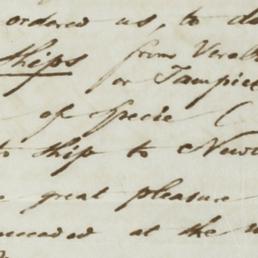 ordered us, to
ships from Vera
or Tampico
of Specie (
to ship to New
great pleasure
at the